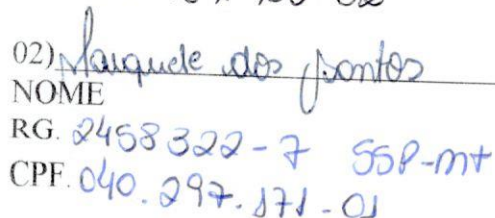 02) dos Santos
NOME
RG. 2458322-7 SSP-mt
CPF. 040.297.171-01